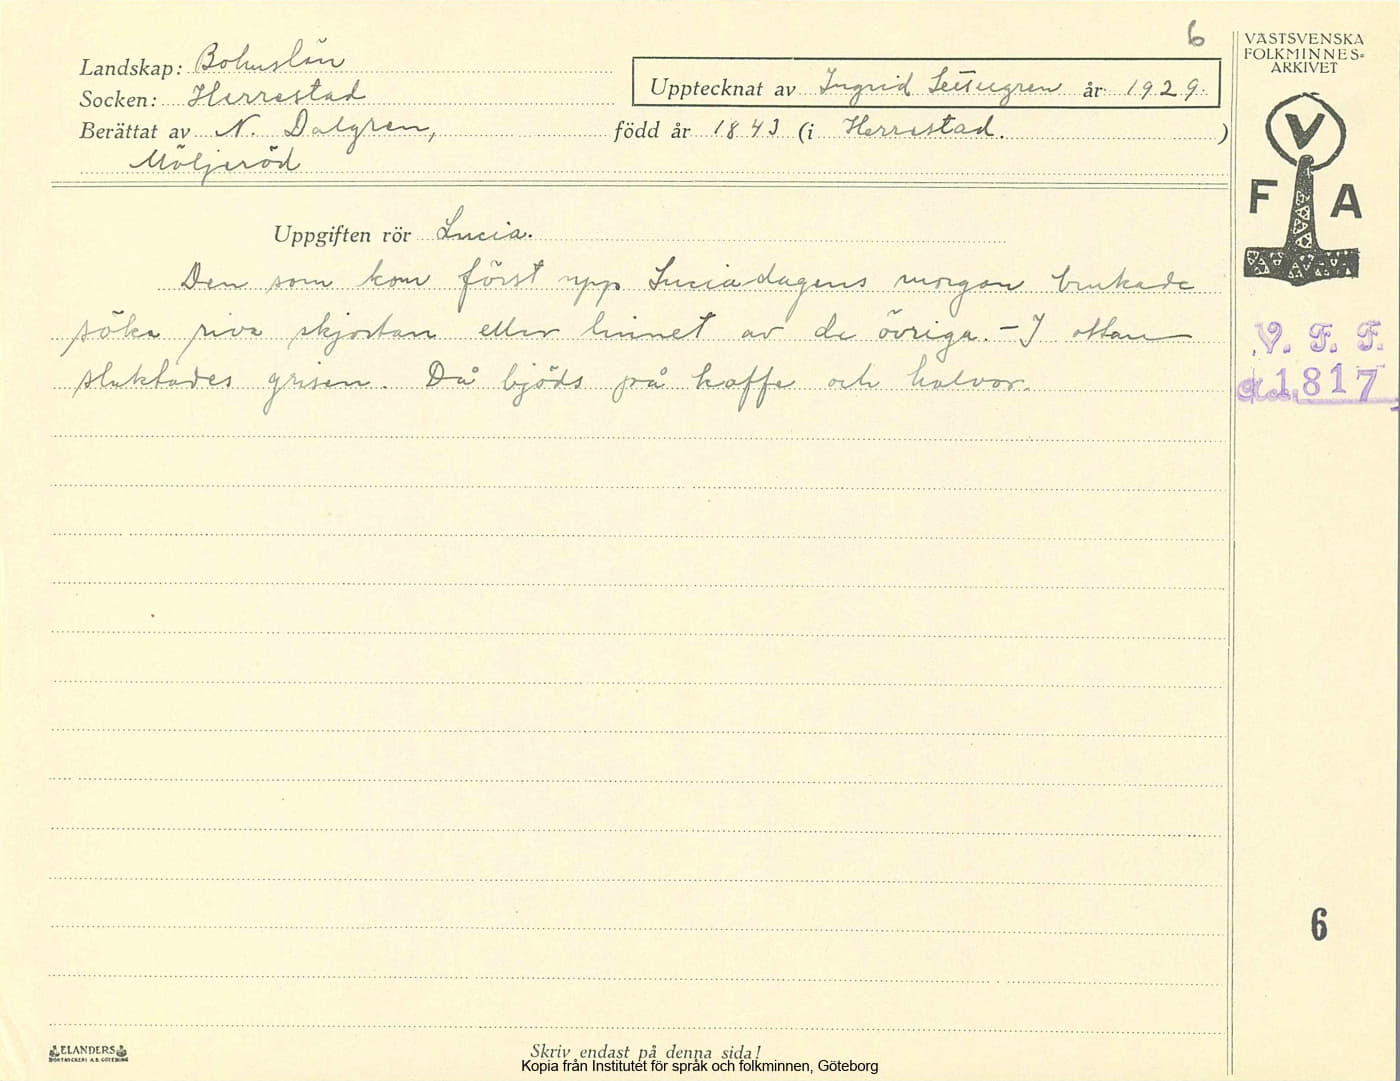 6
VÄSTSVENSKA
FOLKMINNES-
ARKIVET
Landskap: Bohuslän
Upptecknat av Ingrid år 1929.
Socken: Herrestad
Berättat av N. Dalgren, född år 1843 (i Herrestad. )
Möljeröd
V
F A
Uppgiften rör Lucia.
Den som kom först upp Luciadagens morgon brukade
söka riva skjortan eller linnet av de övriga. – I ottan
slaktades grisen. Då bjöds på kaffe och halvor.
V. F. F.
1817
6
ELANDERS
BOKTRYCKERI A.B. GÖTEBORG
Skriv endast på denna sida!
Kopia från Institutet för språk och folkminnen, Göteborg